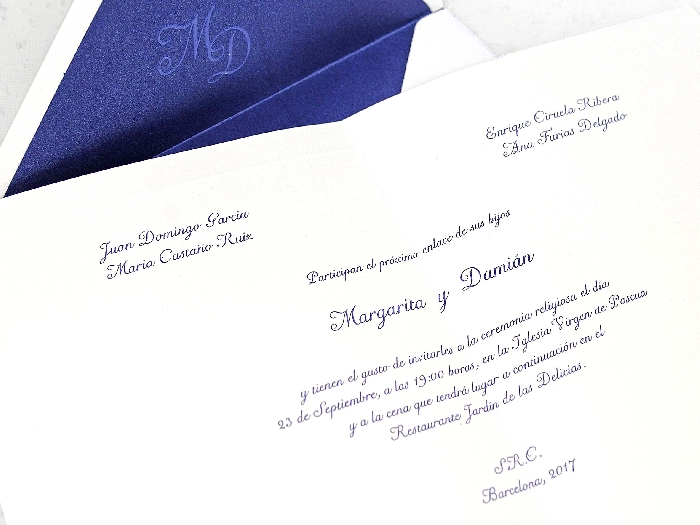 MD
Enrique Ciruela Ribera
Ana Furias Delgado
Juan Domingo García
María Castaño Ruiz
Participan el próximo enlace de sus hijos
Margarita y Damián
y tienen el gusto de invitarles a la ceremonia religiosa el día
23 de Septiembre, a las 19:00 horas, en la Iglesia Virgen de Pascua
y a la cena que tendrá lugar a continuación en el
Restaurante Jardín de las Delicias.
S.R.C.
Barcelona, 2017